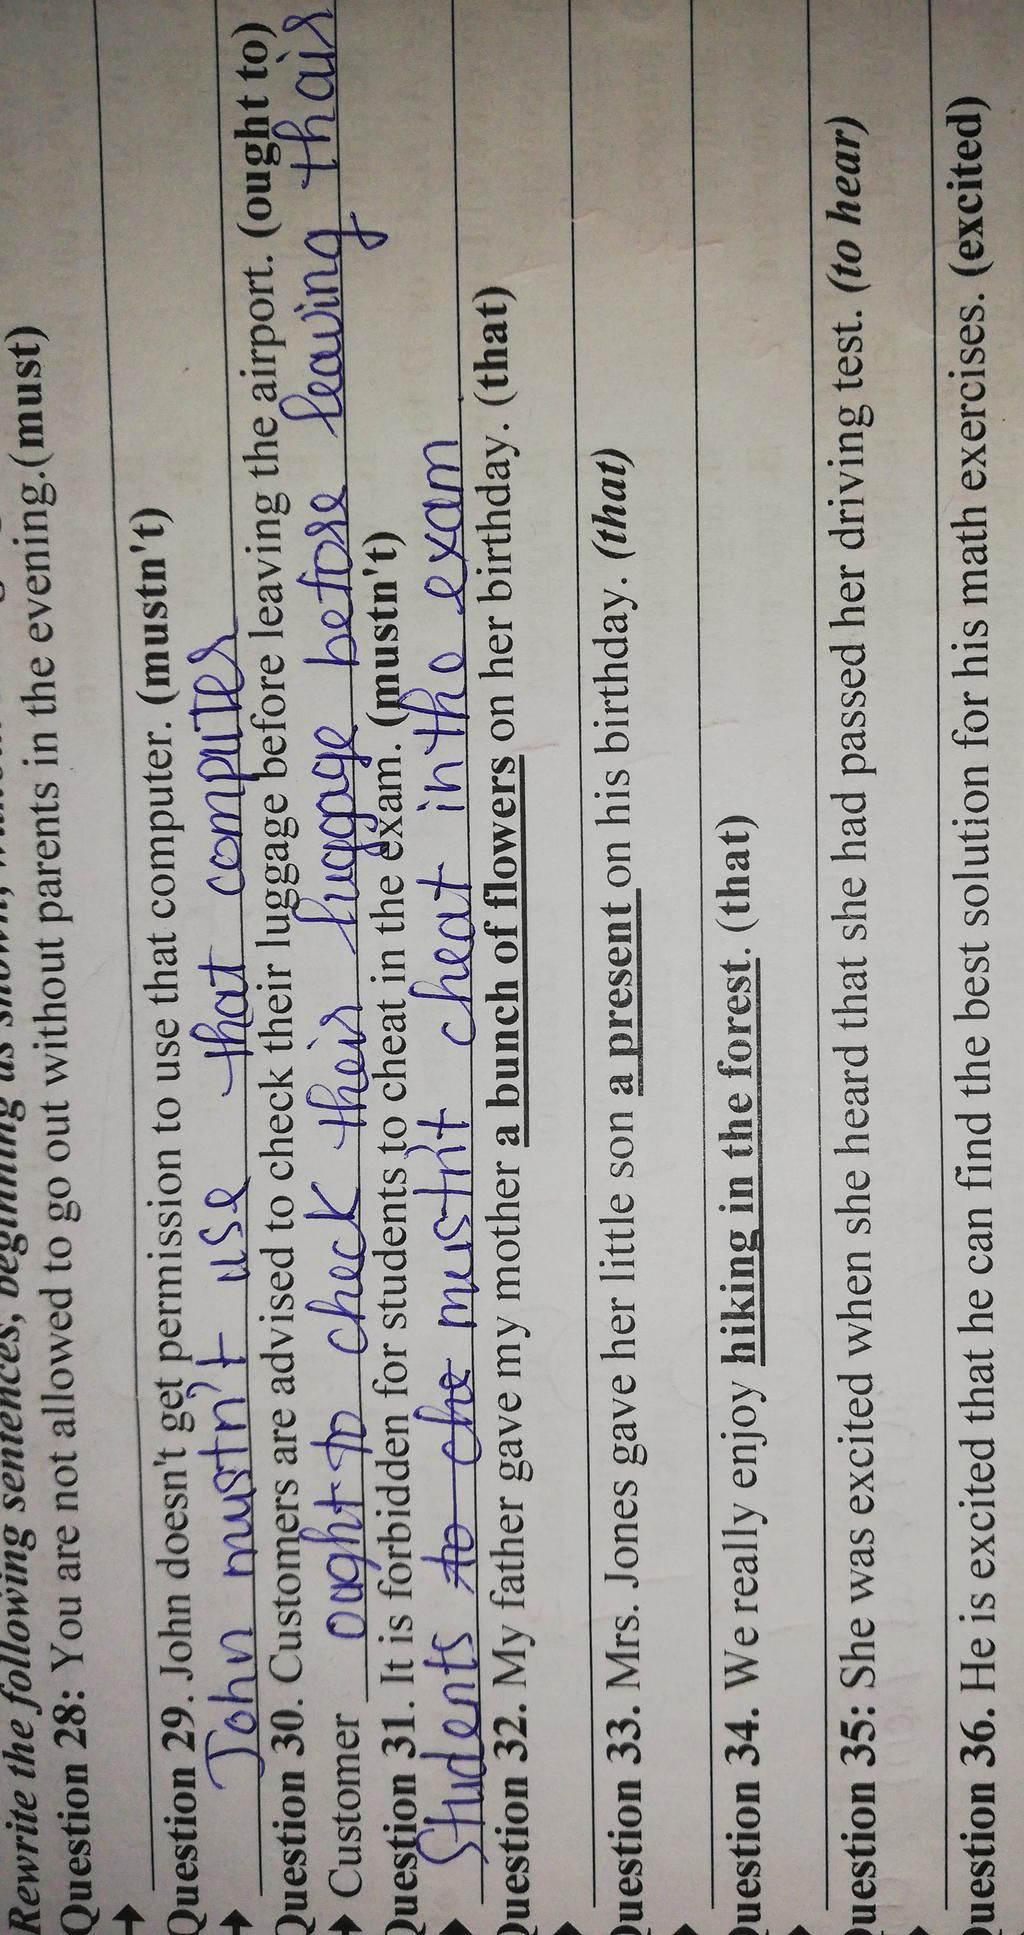 Rewrite the following sentences, beginning as shown,
Question 28: You are not allowed to go out without parents in the evening.(must)
Question 29. John doesn't get permission to use that computer. (mustn't)
John mustn't use that computer
Question 30. Customers are advised to check their luggage before leaving the airport. (ought to)
Customer ought to check their luggage before leaving thair
Question 31. It is forbidden for students to cheat in the exam. (mustn't)
Students to che mustn't cheat in the exam
Question 32. My father gave my mother a bunch of flowers on her birthday. (that)
Question 33. Mrs. Jones gave her little son a present on his birthday. (that)
Question 34. We really enjoy hiking in the forest. (that)
Question 35: She was excited when she heard that she had passed her driving test. (to hear)
Question 36. He is excited that he can find the best solution for his math exercises. (excited)